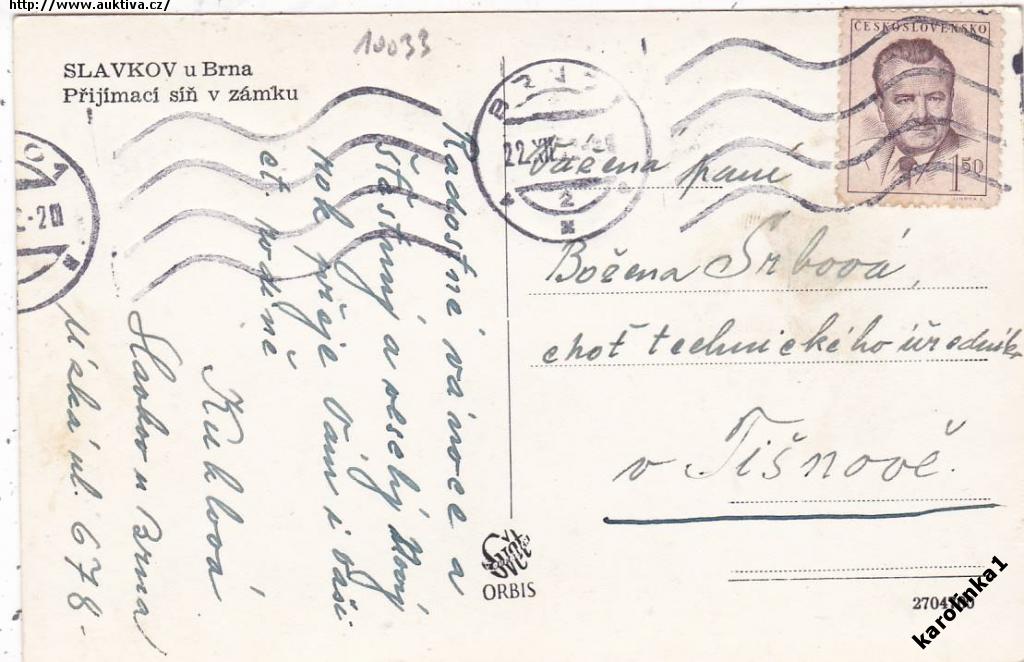 http://www.auktiva.cz/
10033
SLAVKOV u Brna
Přijímací síň v zámku
Radostné vánoce a
šťastný a veselý Nový
rok přeje Vám i Vaší
ct. rodině
Kuklová
Slavkov u Brna
678
BRNO
22.XII.
2
ČESKOSLOVENSKO
1.50
Vážená paní
Božena Srbová,
choť technického úředníka
v Tišnově.
ORBIS
karolinka1